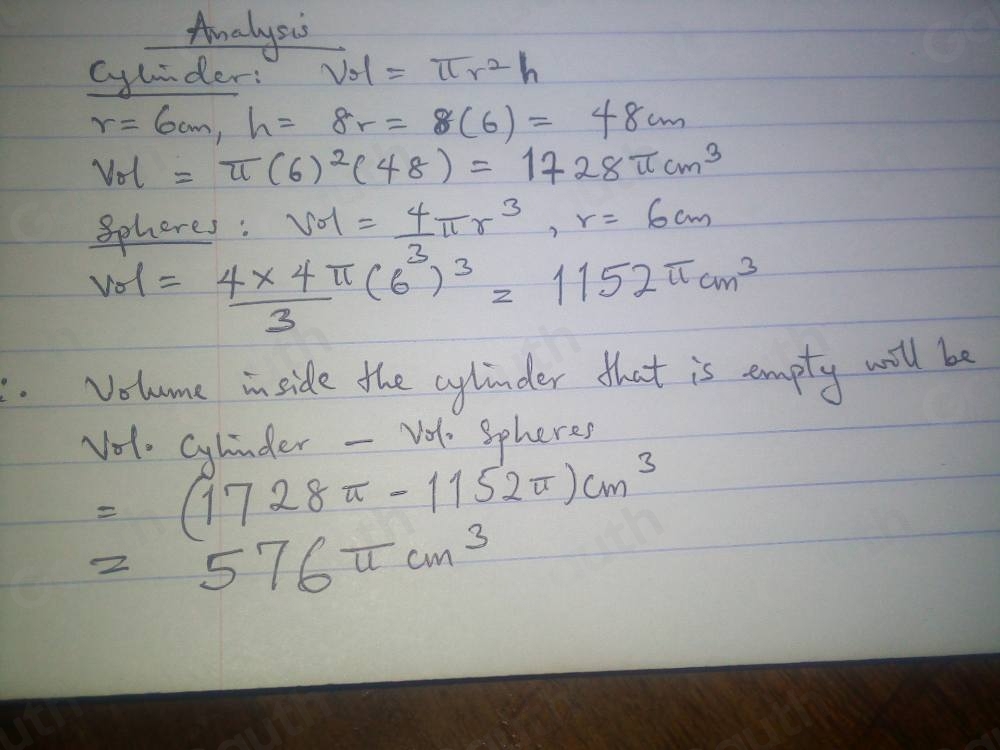 Analysis
Cylinder: Vol = πr²h
r = 6cm, h = 8r = 8(6) = 48cm
Vol = π(6)²(48) = 1728πcm³
Spheres: Vol = 4/3 πr³, r = 6cm
Vol = 4×4/3 π(6)³ = 1152πcm³
∴ Volume inside the cylinder that is empty will be
Vol. Cylinder – Vol. Spheres
= (1728π – 1152π)cm³
= 576πcm³